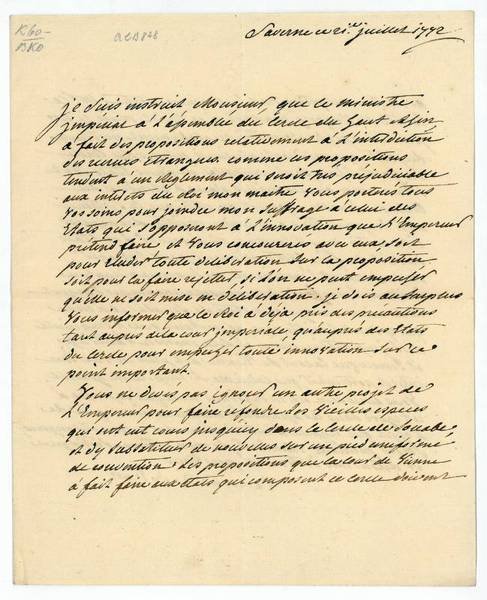 K60-
BKO
Saverne ce 21.e juillet 1772
je suis instruit Monsieur que le ministre
jmpérial à L'assemblée du cercle du haut Rhin
à fait des propositions relativement à L'interdiction
des recrues Etrangues. comme ces propositions
tendent à un Reglement qui seroit tres prejudiciable
aux interets du Roi mon maitre Vous porterés tous
Vos soins pour joindre mon Suffrage à celui des
Etats qui s'opposeront à L'innovation que L'Empereur
prétend faire et Vous concourerés avec eux, soit
pour Eluder toute déliberation sur la proposition
soit pour la faire rejetter, si L'on ne peut empecher
qu'elle ne soit mise en déliberation. je dois au Surplus
Vous informer que le Roi à déja pris des precautions
tant auprès de la cour jmperiale, qu'auprès des Etats
du cercle pour empecher toute innovation sur ce
point important.
Vous ne devés pas ignorer un autre projet de
L'Empereur pour faire refondre Les Vieilles especes
qui ont eut cours jusqu'icy dans le cercle de Souabe
et d'y Substituer de nouvelles sur un pied uniforme
de convention. Les propositions que la cour de Vienne
à fait faire aux Etats qui composent ce cercle doivent